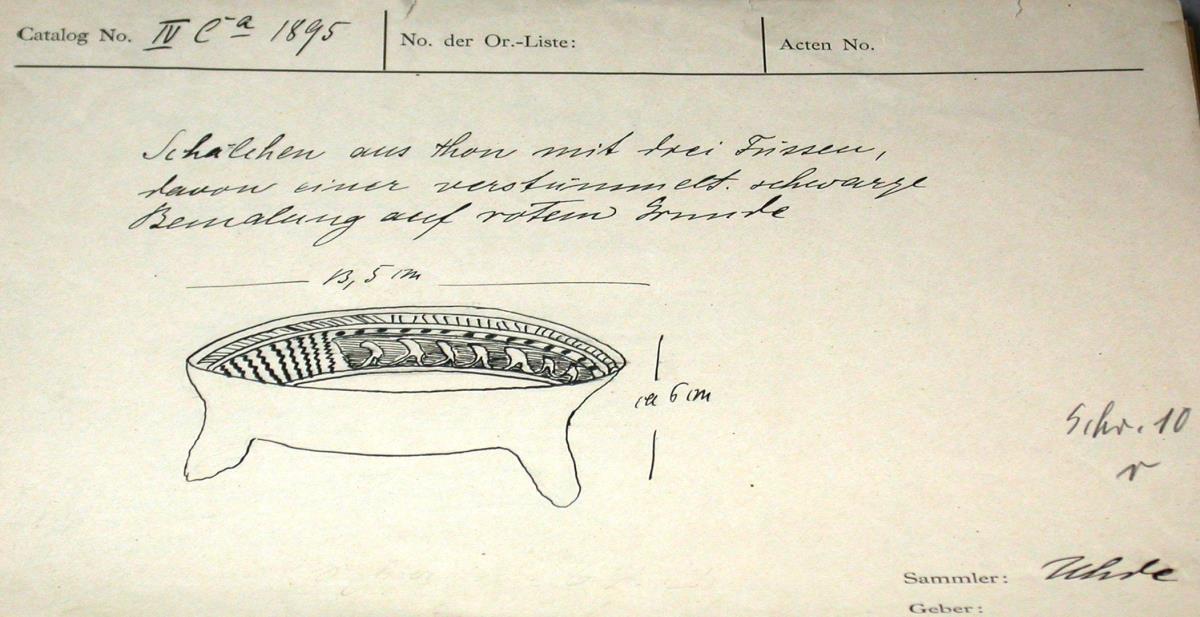 Catalog No. IV Ca 1895 No. der Or.-Liste: Acten No.
Schälchen aus thon mit drei Füssen,
davon einer verstümmelt. schwarze
Bemalung auf rotem Grunde
13,5 cm
ca 6 cm
Schr. 10
r
Sammler: Uhde
Geber: